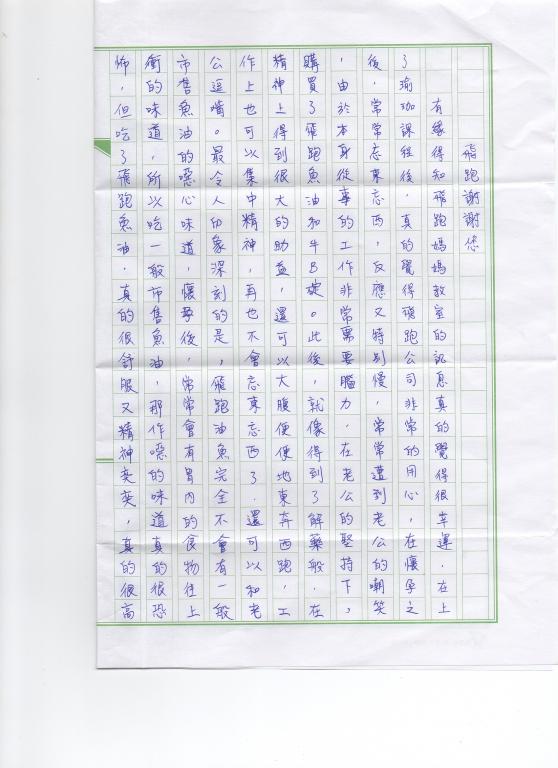 飛跑謝謝您
有緣得知飛跑媽媽教室的訊息真的覺得很幸運．在上
了瑜珈課程後，真的覺得飛跑公司非常的用心，在懷孕之
後，常常忘東忘西，反應又特別慢，常常遭到老公的嘲笑
，由於本身從事的工作非常需要腦力，在老公的堅持下，
購買了飛跑魚油和牛B碇。此後，就像得到了解藥般．在
精神上得到很大的助益，還可以大腹便便地東奔西跑，工
作上也可以集中精神，再也不會忘東忘西了．還可以和老
公逗嘴。最令人印象深刻的是，飛跑油魚完全不會有一般
市售魚油的噁心味道，懷孕後，常常會有胃內的食物往上
衝的味道，所以吃一般市售魚油，那作噁的味道真的很恐
怖，但吃了飛跑魚油．真的很舒服又精神奕奕，真的很高